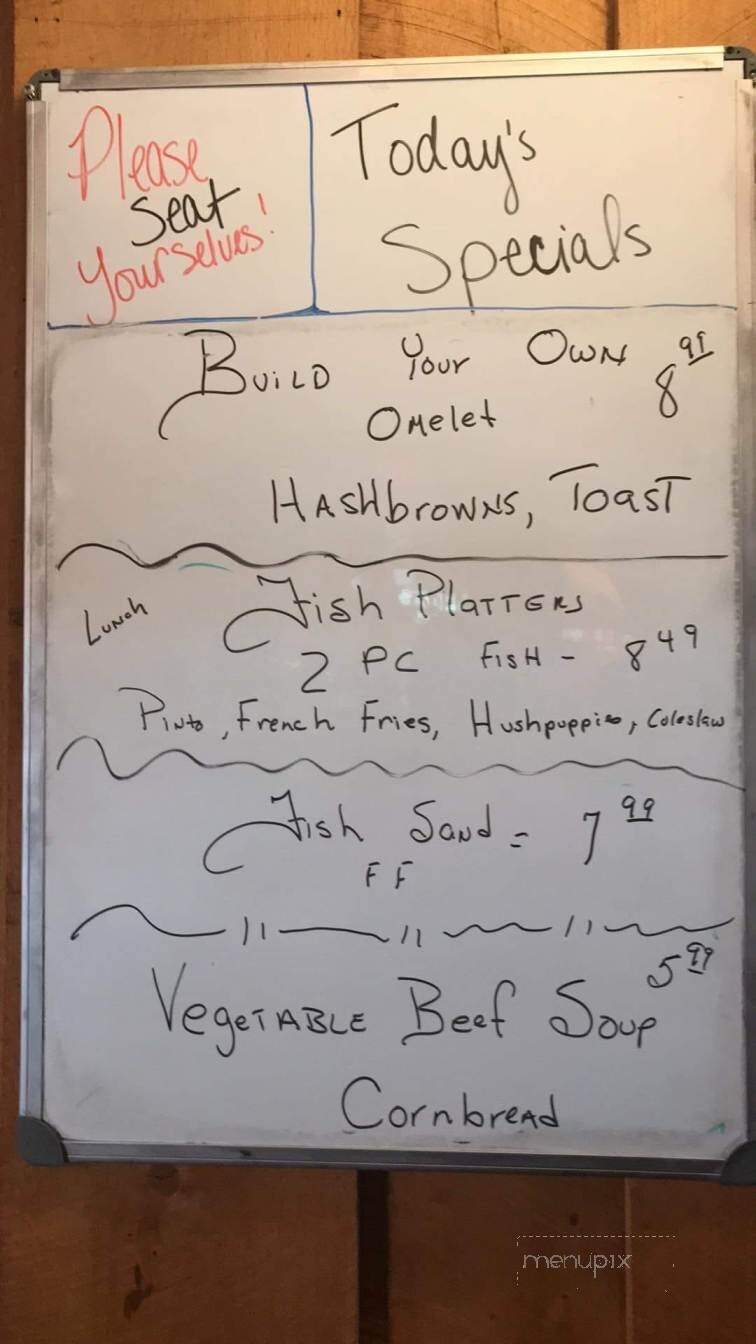 Please
Seat
Yourselves!
Today's
Specials
Build Your Own 8 99
Omelet
Hashbrowns, Toast
Lunch
Fish Platters
2 PC Fish - 8 49
Pinto, French Fries, Hushpuppies, Coleslaw
Fish Sand = 7 99
FF
5 99
Vegetable Beef Soup
Cornbread
menupix